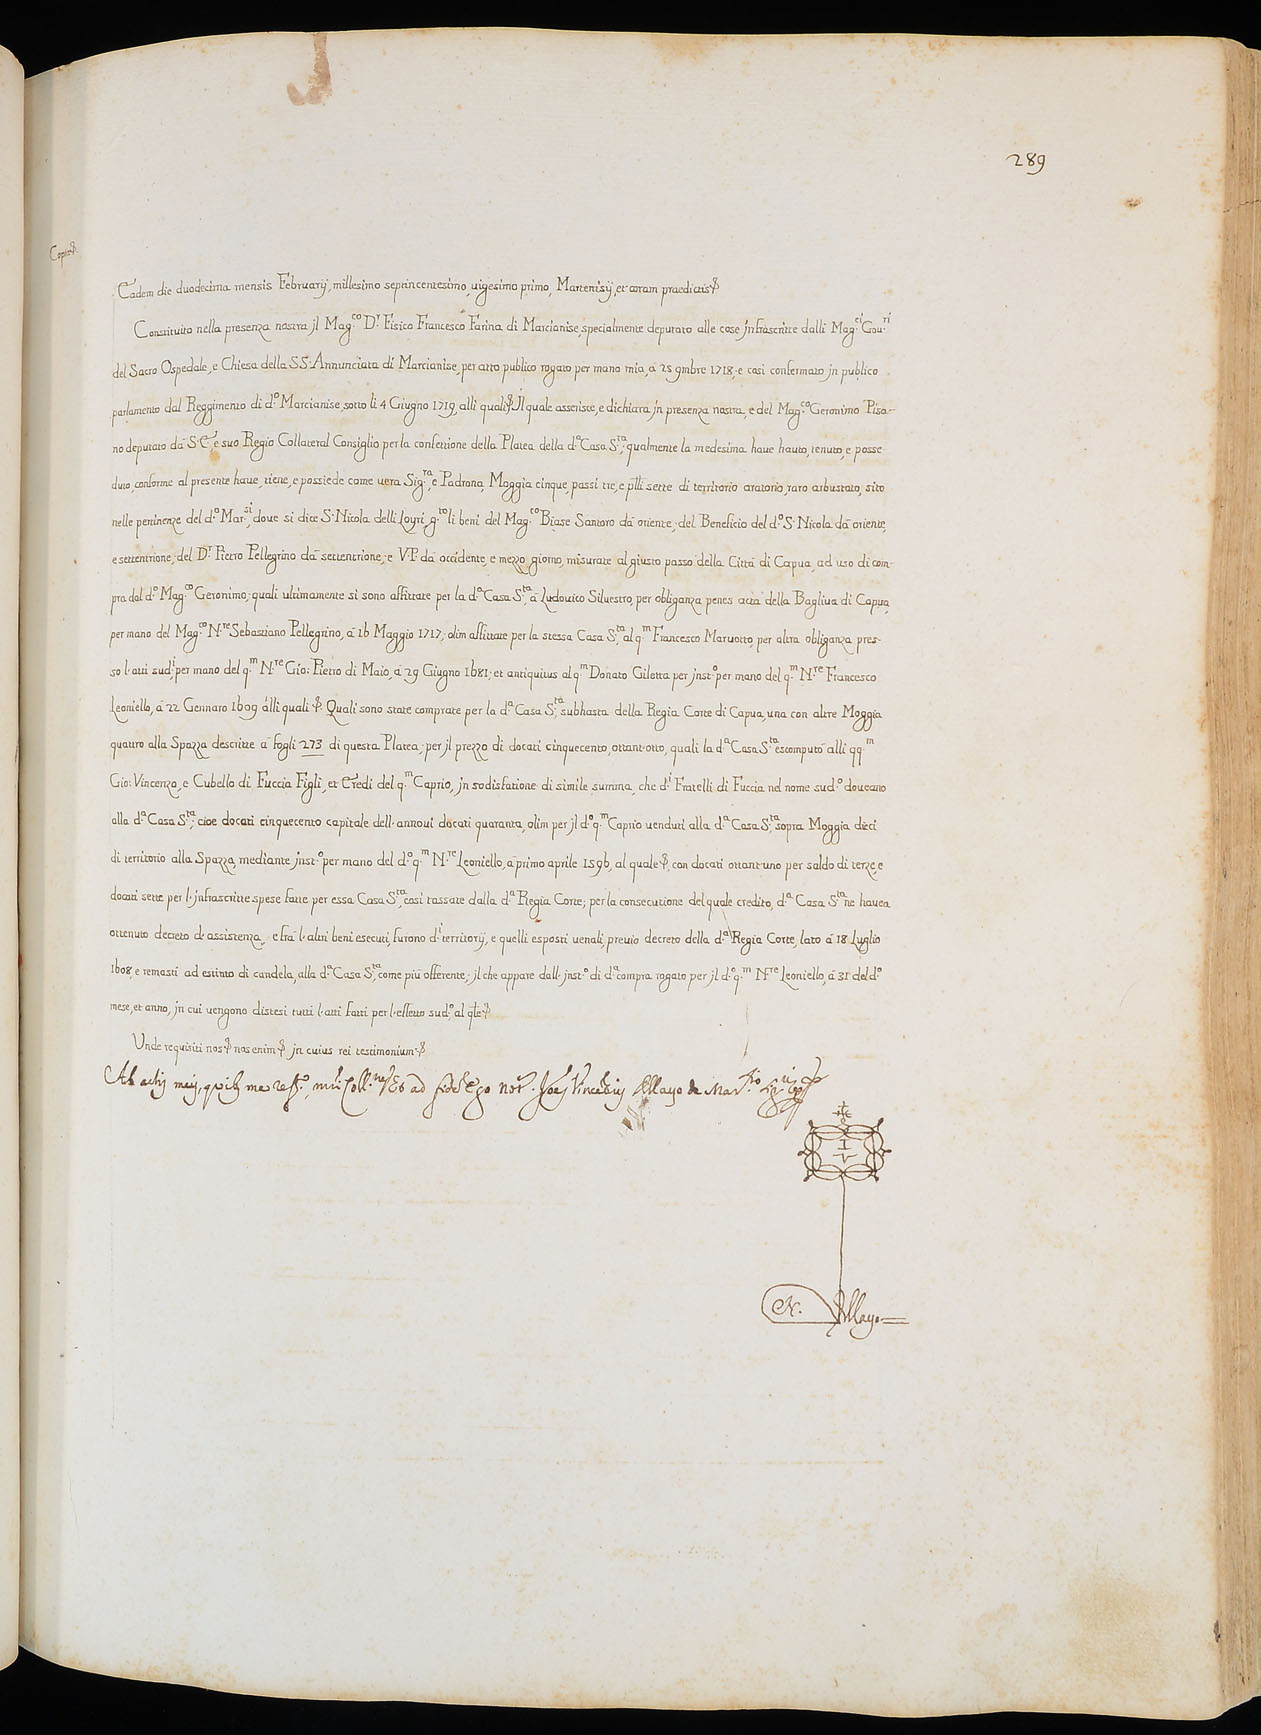 289
Copia
Eadem die duodecima mensis Februarij, millesimo septincentesimo, uigesimo primo, Martenisij, et coram praedictis
Constituito nella presenza nostra jl Mag.co D.r Fisico Francesco Farina di Marcianise, specialmente deputato alle cose jnfrascritte dalli Mag.ci Gou.ri
del Sacro Ospedale, e Chiesa della SS. Annunciata di Marcianise, per atto publico rogato per mano mia, à 25 9mbre 1718, e così confermato jn publico
parlamento dal Reggimento di d.o Marcianise, sotto li 4 Giugno 1719, alli quali Jl quale asserisce, e dichiara jn presenza nostra, e del Mag.co Geronimo Pisa-
no deputato da S. E. e suo Regio Collateral Consiglio per la confettione della Platea della d.a Casa S.ta, qualmente la medesima haue hauto, tenuto, e posse-
duto, conforme al presente haue, tiene, e possiede come uera Sig.ra, e Padrona, Moggia cinque, passi tre, e p̃lli sette di territorio aratorio, raro arbustato, sito
nelle pertinenze del d.o Mar.si, doue si dice S. Nicola delli Loyri, g.to li beni del Mag.co Biase Santoro dà oriente, del Beneficio del d.o S. Nicola dà oriente,
e settentrione, del D.r Pietro Pellegrino dà settentrione, e V. P. dà occidente, e mezzo giorno, misurate al giusto passo della Città di Capua, ad uso di com-
pra dal d.o Mag.co Geronimo, quali ultimamente si sono affittate per la d.a Casa S.ta, à Ludouico Siluestro, per obliganza penes acta della Bagliua di Capua,
per mano del Mag.co N.re Sebastiano Pellegrino, à 16 Maggio 1717, olim affittate per la stessa Casa S.ta, al q.m Francesco Maruotto, per altra obliganza pres-
so l'atti sud.i per mano del q.m N.re Gio: Pietro di Maio, à 29 Giugno 1681; et antiquitus al q.m Donato Giletta per jnst.o per mano del q.m N.re Francesco
Leoniello, à 22 Gennaro 1609 alli quali Quali sono state comprate per la d.a Casa S.ta, subhasta della Regia Corte di Capua, una con altre Moggia
quattro alla Spazza descritte à fogli 273 di questa Platea, per jl prezzo di docati cinquecento, ottant'otto, quali la d.a Casa S.ta escomputò alli qq.m
Gio: Vincenzo, e Cubello di Fuccia Figli, et Eredi del q.m Caprio, jn sodisfatione di simile summa, che d.i Fratelli di Fuccia nel nome sud.o doueano
alla d.a Casa S.ta; cioe docati cinquecento capitale dell'annoui docati quaranta, olim per jl d.o q.m Caprio uenduti alla d.a Casa S.ta, sopra Moggia dieci
di territorio alla Spazza, mediante jnst.o per mano del d.o q.m N.re Leoniello, à primo aprile 1596, al quale, con docati ottant'uno per saldo di terze, e
docati sette per l'jnfrascritte spese fatte per essa Casa S.ta, così tassate dalla d.a Regia Corte; per la consecutione del quale credito, d.a Casa S.ta ne hauea
ottenuto decreto d'assistenza, e frà l'altri beni esecuti, furono d.i territorij, e quelli esposti uenali, preuio decreto della d.a Regia Corte, lato à 18 Luglio
1608, e remasti ad estinto di candela, alla d.a Casa S.ta, come più offerente, jl che appare dall'jnst.o di d.a compra rogato per jl d.o q.m N.re Leoniello, à 31 del d.o
mese, et anno, jn cui uengono distesi tutti l'atti fatti per l'effetto sud.o, al q̃le
Unde requisiti nos nos enim jn cuius rei testimonium
Ab actis meis, ad fidem Ego Not.s Vincentius de Mar.
I V
N.